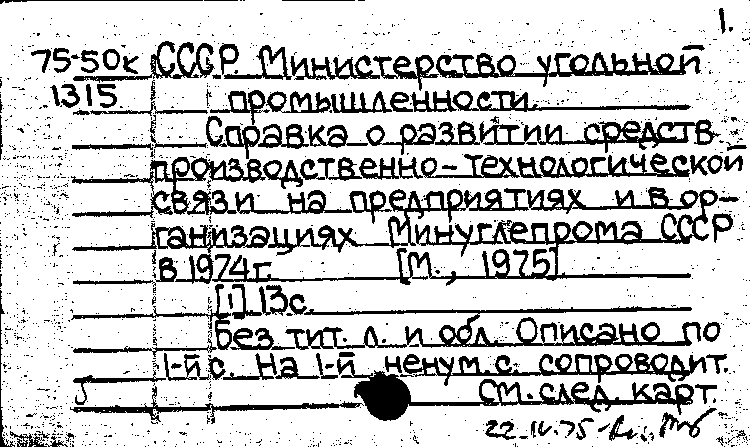 1.
75-50к СССР. Министерство угольной
1315 промышленности.
Справка о развитии средств
производственно-технологической
связи на предприятиях и в ор-
ганизациях Минуглепрома СССР
в 1974г. [М., 1975]
[1] 13с.
Без тит. л. и обл. Описано по
1-й с. На 1-й ненум. с. сопроводит.
см. след. карт.